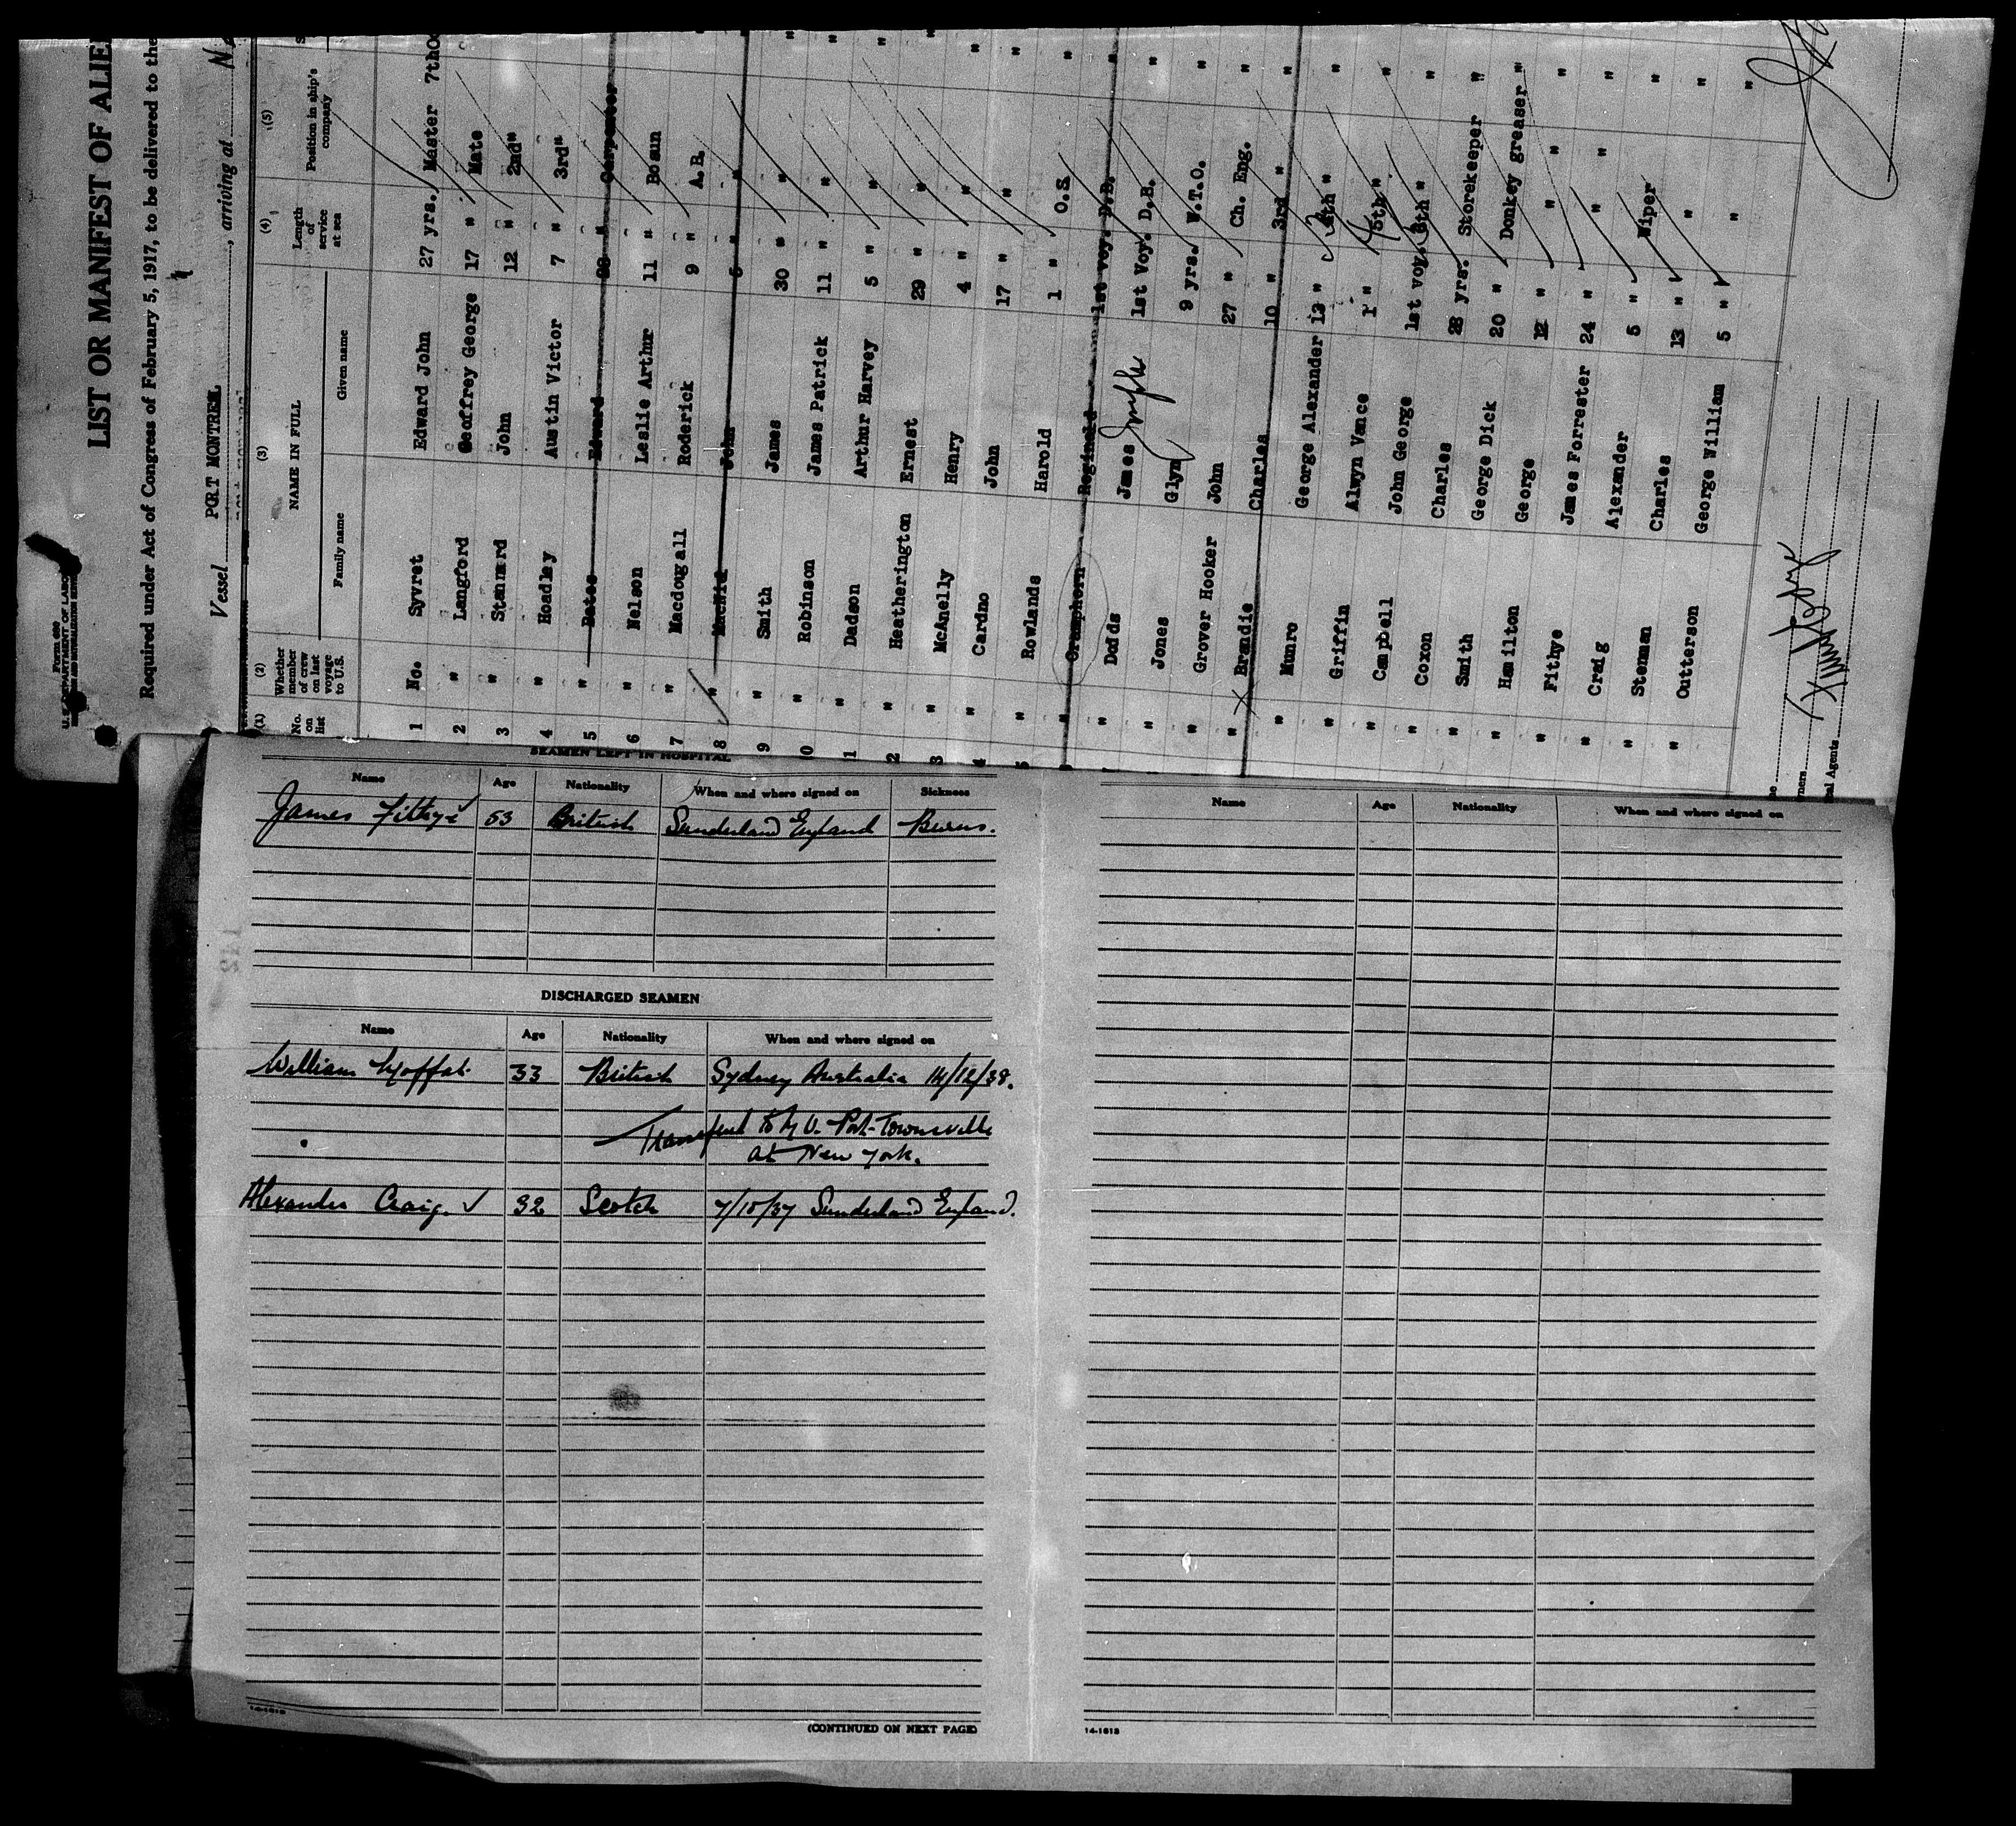 Form 689
U. S. DEPARTMENT OF LABOR
LIST OR MANIFEST OF ALIE
Required under Act of Congress of February 5, 1917, to be delivered to the
Vessel PORT MONTREAL, arriving at
(1) (2) (3) (4) (5)
No. on list Whether member of crew on last voyage to U.S. NAME IN FULL Length of service at sea Position in ship's company
Family name Given name
1 No. Syvret Edward John 27 yrs. Master 7th
2 " Langford Geoffrey George 17 " Mate
3 " Stannard John 12 " 2nd "
4 " Hoadley Austin Victor 7 " 3rd "
5 " Bates Edward 28 " Carpenter
6 " Nelson Leslie Arthur 11 " Bosun
7 " Macdougall Roderick 9 " A.B.
8 " MacNid John 5 " "
9 " Smith James 30 " "
10 " Robinson James Patrick 11 " "
11 " Dadson Arthur Harvey 5 " "
2 " Heatherington Ernest 29 " "
3 " McAnelly Henry 4 " "
4 " Cardno John 17 " "
5 " Rowlands Harold 1 " O.S.
" Cramphorn Reginald 1st voy. D.B.
" Dodds James Joseph 1st Voy. D.B.
" Jones Glyn 9 yrs. W.T.O.
" Grover Hooker John 27 " Ch. Eng.
" Brandie Charles 10 " 3rd "
" Munro George Alexander 13 " 4th "
" Griffin Alwyn Vance 1 " 5th "
" Campbell John George 1st voy. 8th "
" Coxon Charles 28 yrs. Storekeeper "
" Smith George Dick 20 " Donkey greaser "
" Hamilton George 12 " " "
" Fithye James Forrester 24 " " "
" Craig Alexander 5 " Wiper "
" Stenman Charles 13 " " "
" Outterson George William 5 " " "
SEAMEN LEFT IN HOSPITAL
Name Age Nationality When and where signed on Sickness
James Fithye 53 British Sunderland England Burns.
DISCHARGED SEAMEN
Name Age Nationality When and where signed on
William Moffat. 33 British Sydney Australia 14/12/38.
Transferred to M.V. Port Townsville
at New York.
Alexander Craig. 32 Scotch 7/10/37 Sunderland England.
14-1618
(CONTINUED ON NEXT PAGE)
Name Age Nationality When and where signed on
14-1618